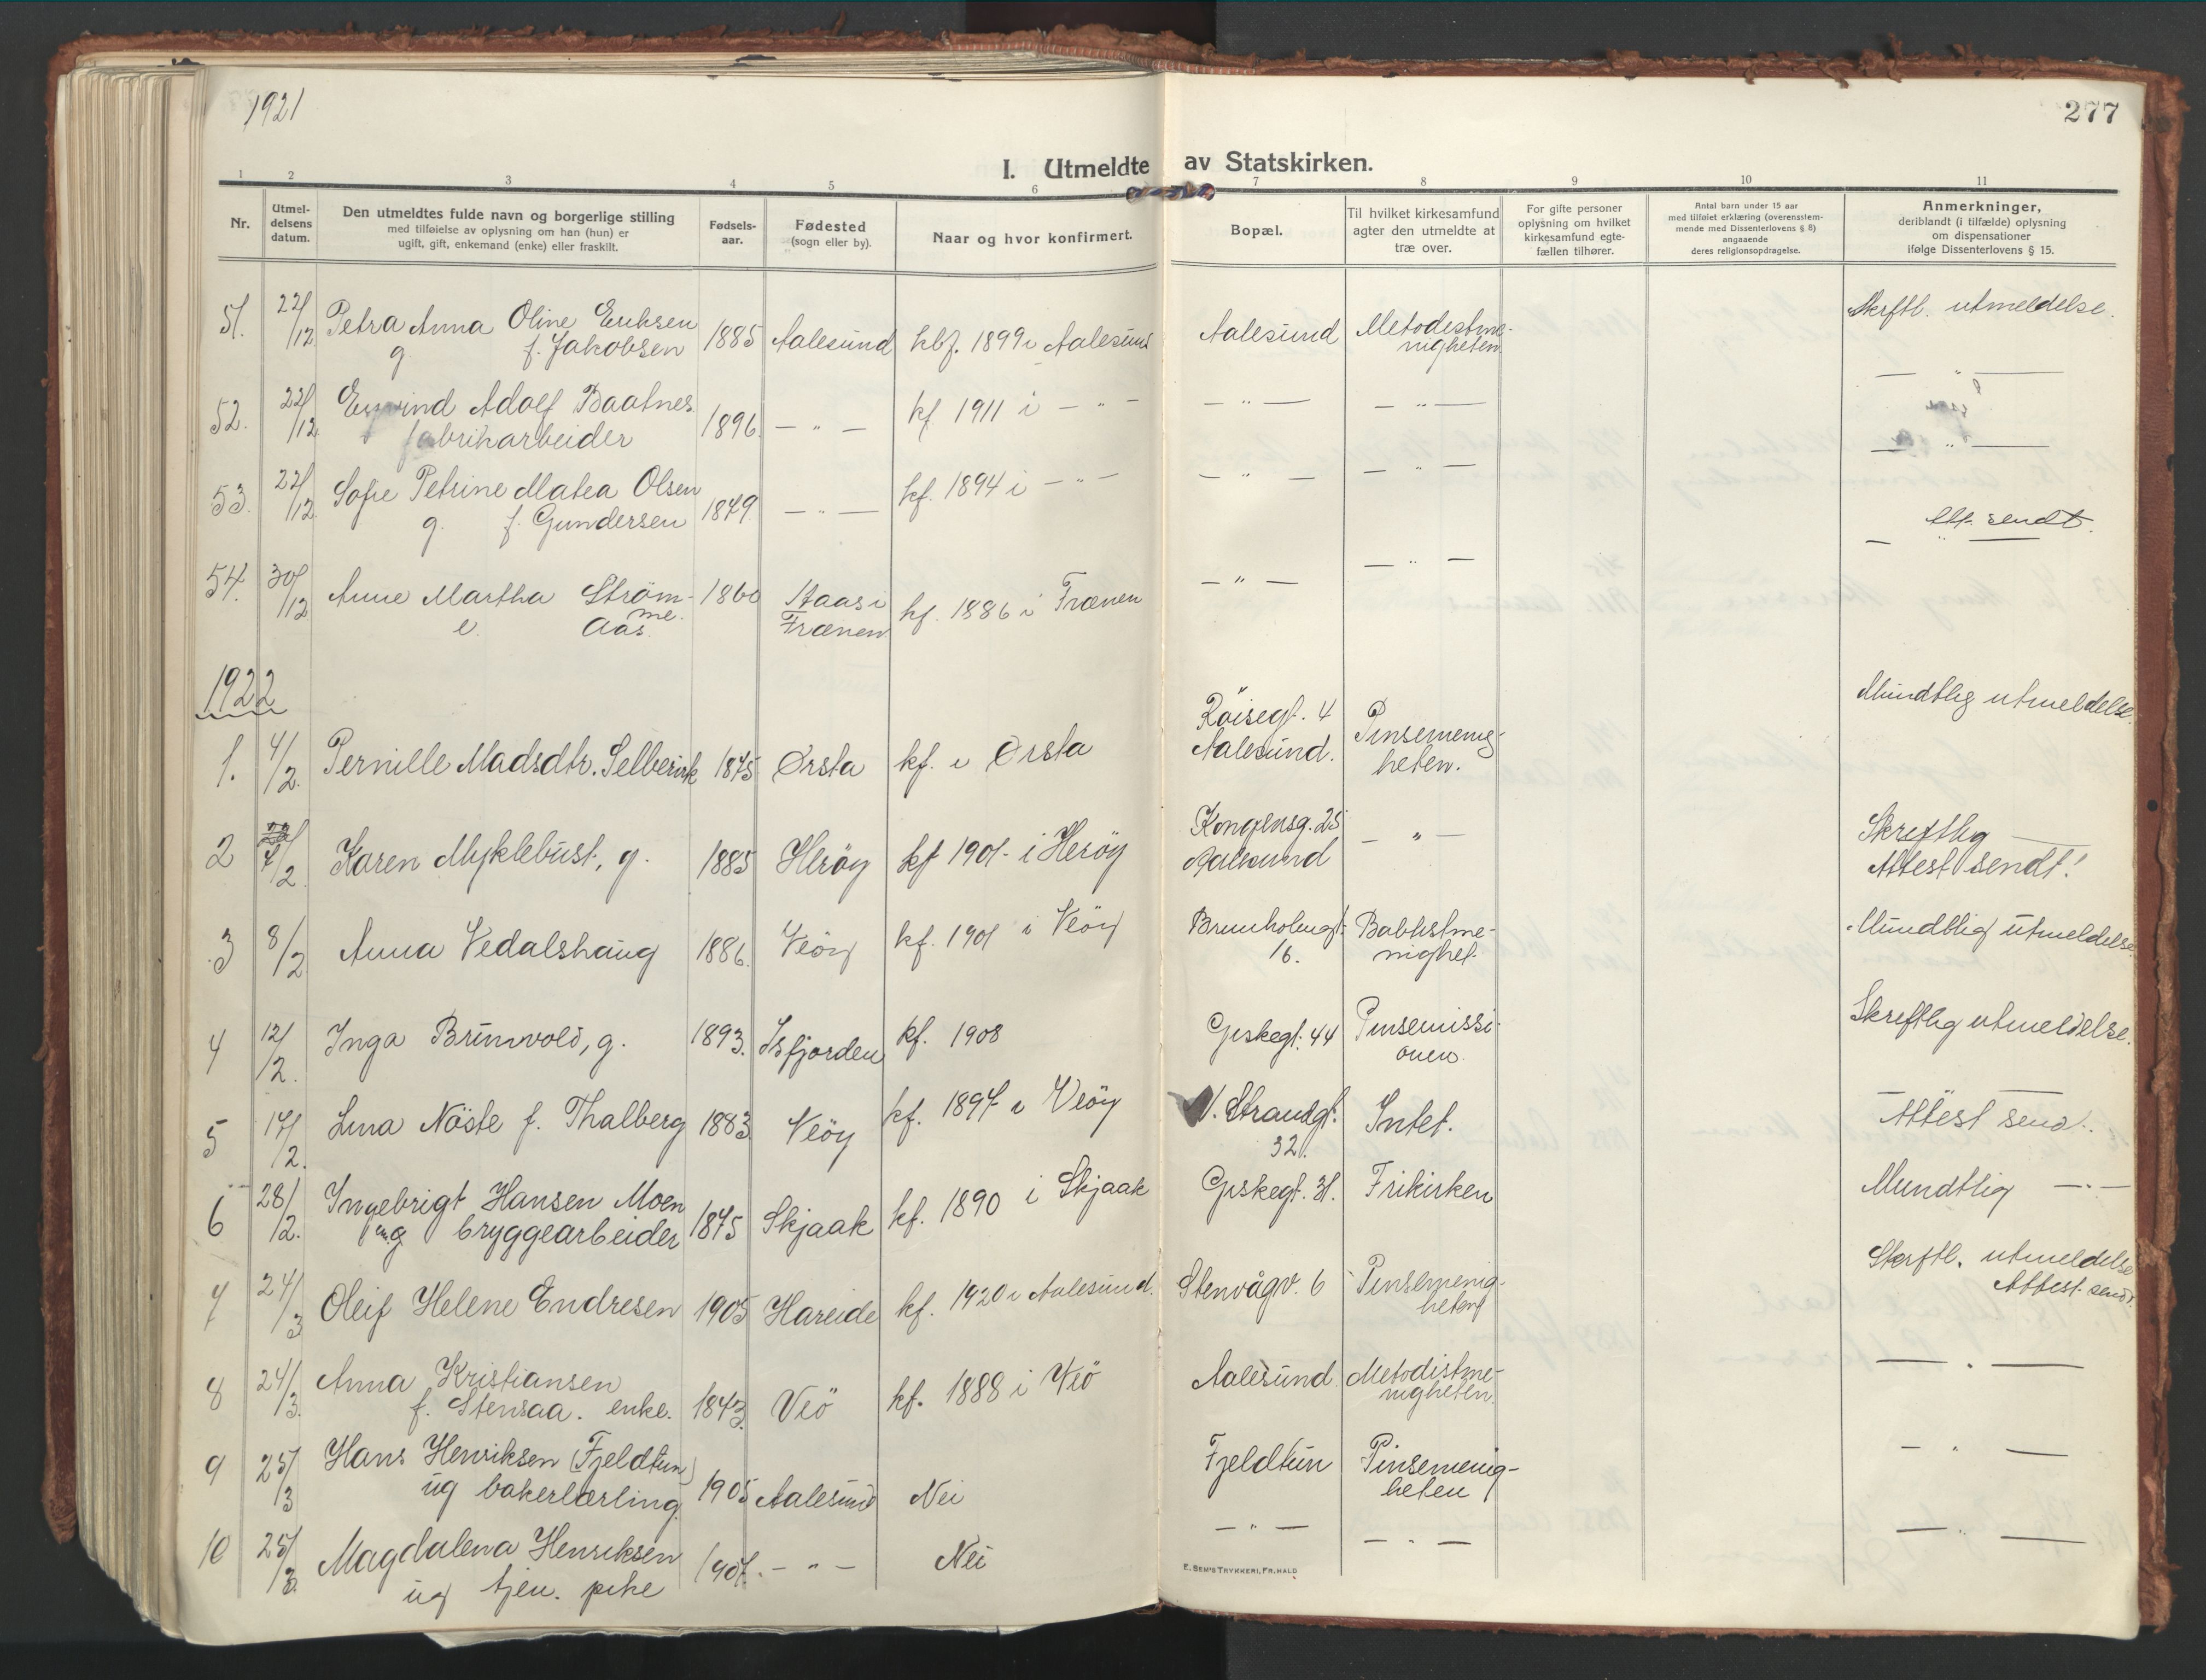 1921
277
I. Utmeldte av Statskirken.
1 2 3 4 5 6 7 8 9 10 11
Nr.
Utmel-
delsens
datum.
Den utmeldtes fulde navn og borgerlige stilling
med tilføielse av oplysning om han (hun) er
ugift, gift, enkemand (enke) eller fraskilt.
Fødsels-
aar.
Fødested
(sogn eller by).
Naar og hvor konfirmert.
Bopæl.
Til hvilket kirkesamfund
agter den utmeldte at
træ over.
For gifte personer
oplysning om hvilket
kirkesamfund egte-
fællen tilhører.
Antal barn under 15 aar
med tilføiet erklæring (overensstem-
mende med Dissenterlovens § 8)
angaaende
deres religionsopdragelse.
Anmerkninger,
deriblandt (i tilfælde) oplysning
om dispensationer
ifølge Dissenterlovens § 15.
51. 22/12 Petra Anna Oline Eriksen 1885 Aalesund kbf. 1899 i Aalesund Aalesund Metodistme- Skriftl. utmeldelse.
g. f. Jakobsen nigheten
52. 22/12 Eyvind Adolf Baatnes 1896. — " — kf. 1911 i — " — — " — — " — — " —
fabrikarbeider
53. 22/12 Sofie Petrine Matea Olsen 1879 — " — kf. 1894 i — " — — " — — " — — " —
g. f. Gundersen
54. 30/12 Anne Martha Ström- 1860 Aas i kf. 1886 i Frænen — " — — " — Att. sendt.
me. Frænen — " —
e. Aas.
1922
1. 4/2. Pernille Madsdtr. 1875 Ørsta kf. i Ørsta Röisegt. 4 Pinsemenig- Mundtlig utmeldelse.
Aalesund. heten.
2 7/2. Karen Myklebust, g. 1885 Heröy kf 1901 i Heröy Kongensg. 25 — " — Skriftlig —
Aalesund Attest sendt!
3 8/2 Anna Vedalshaug 1886. Veöy kf. 1901 i Veöy Brunholmgt. Babtistme- Mundtlig utmeldelse
16. nighet.
4 12/2. Inga Brunvold, g. 1893. Isfjorden kf. 1908 Giskegt. 44 Pinsemissi- Skriftlig utmeldelse.
onen.
5 17/2. Lina Nöste f. Thalberg 1883 Veöy kf. 1897 i Veöy N. Strandgt. Intet. Attest send.
32.
6 28/2. Ingebrigt Hansen Moen 1875 Skjaak kf. 1890 i Skjaak Giskegt. 31. Frikirken Mundtlig — " —
g bryggearbeider
7 24/3 Oleif Helene Endresen 1905 Hareide kf. 1920 i Aalesund. Stenvågv. 6 Pinsemenig- Skriftl. utmeldelse
heten Attest sendt.
8 24/3. Anna Kristiansen 1873. Veö kf. 1888 i Veö Aalesund Metodistme- — " —
f. Stensaa. enke. nigheten.
9 25/3 Hans Henriksen (Fjeldtun) 1905 Aalesund Nei Fjeldtun Pinsemenig- — " —
ug bakerlærling heten
10 25/3. Magdalena Henriksen 1907. — " — Nei — " — — " — — " —
ug tjen. pike
E. SEM'S TRYKKERI, FR.HALD